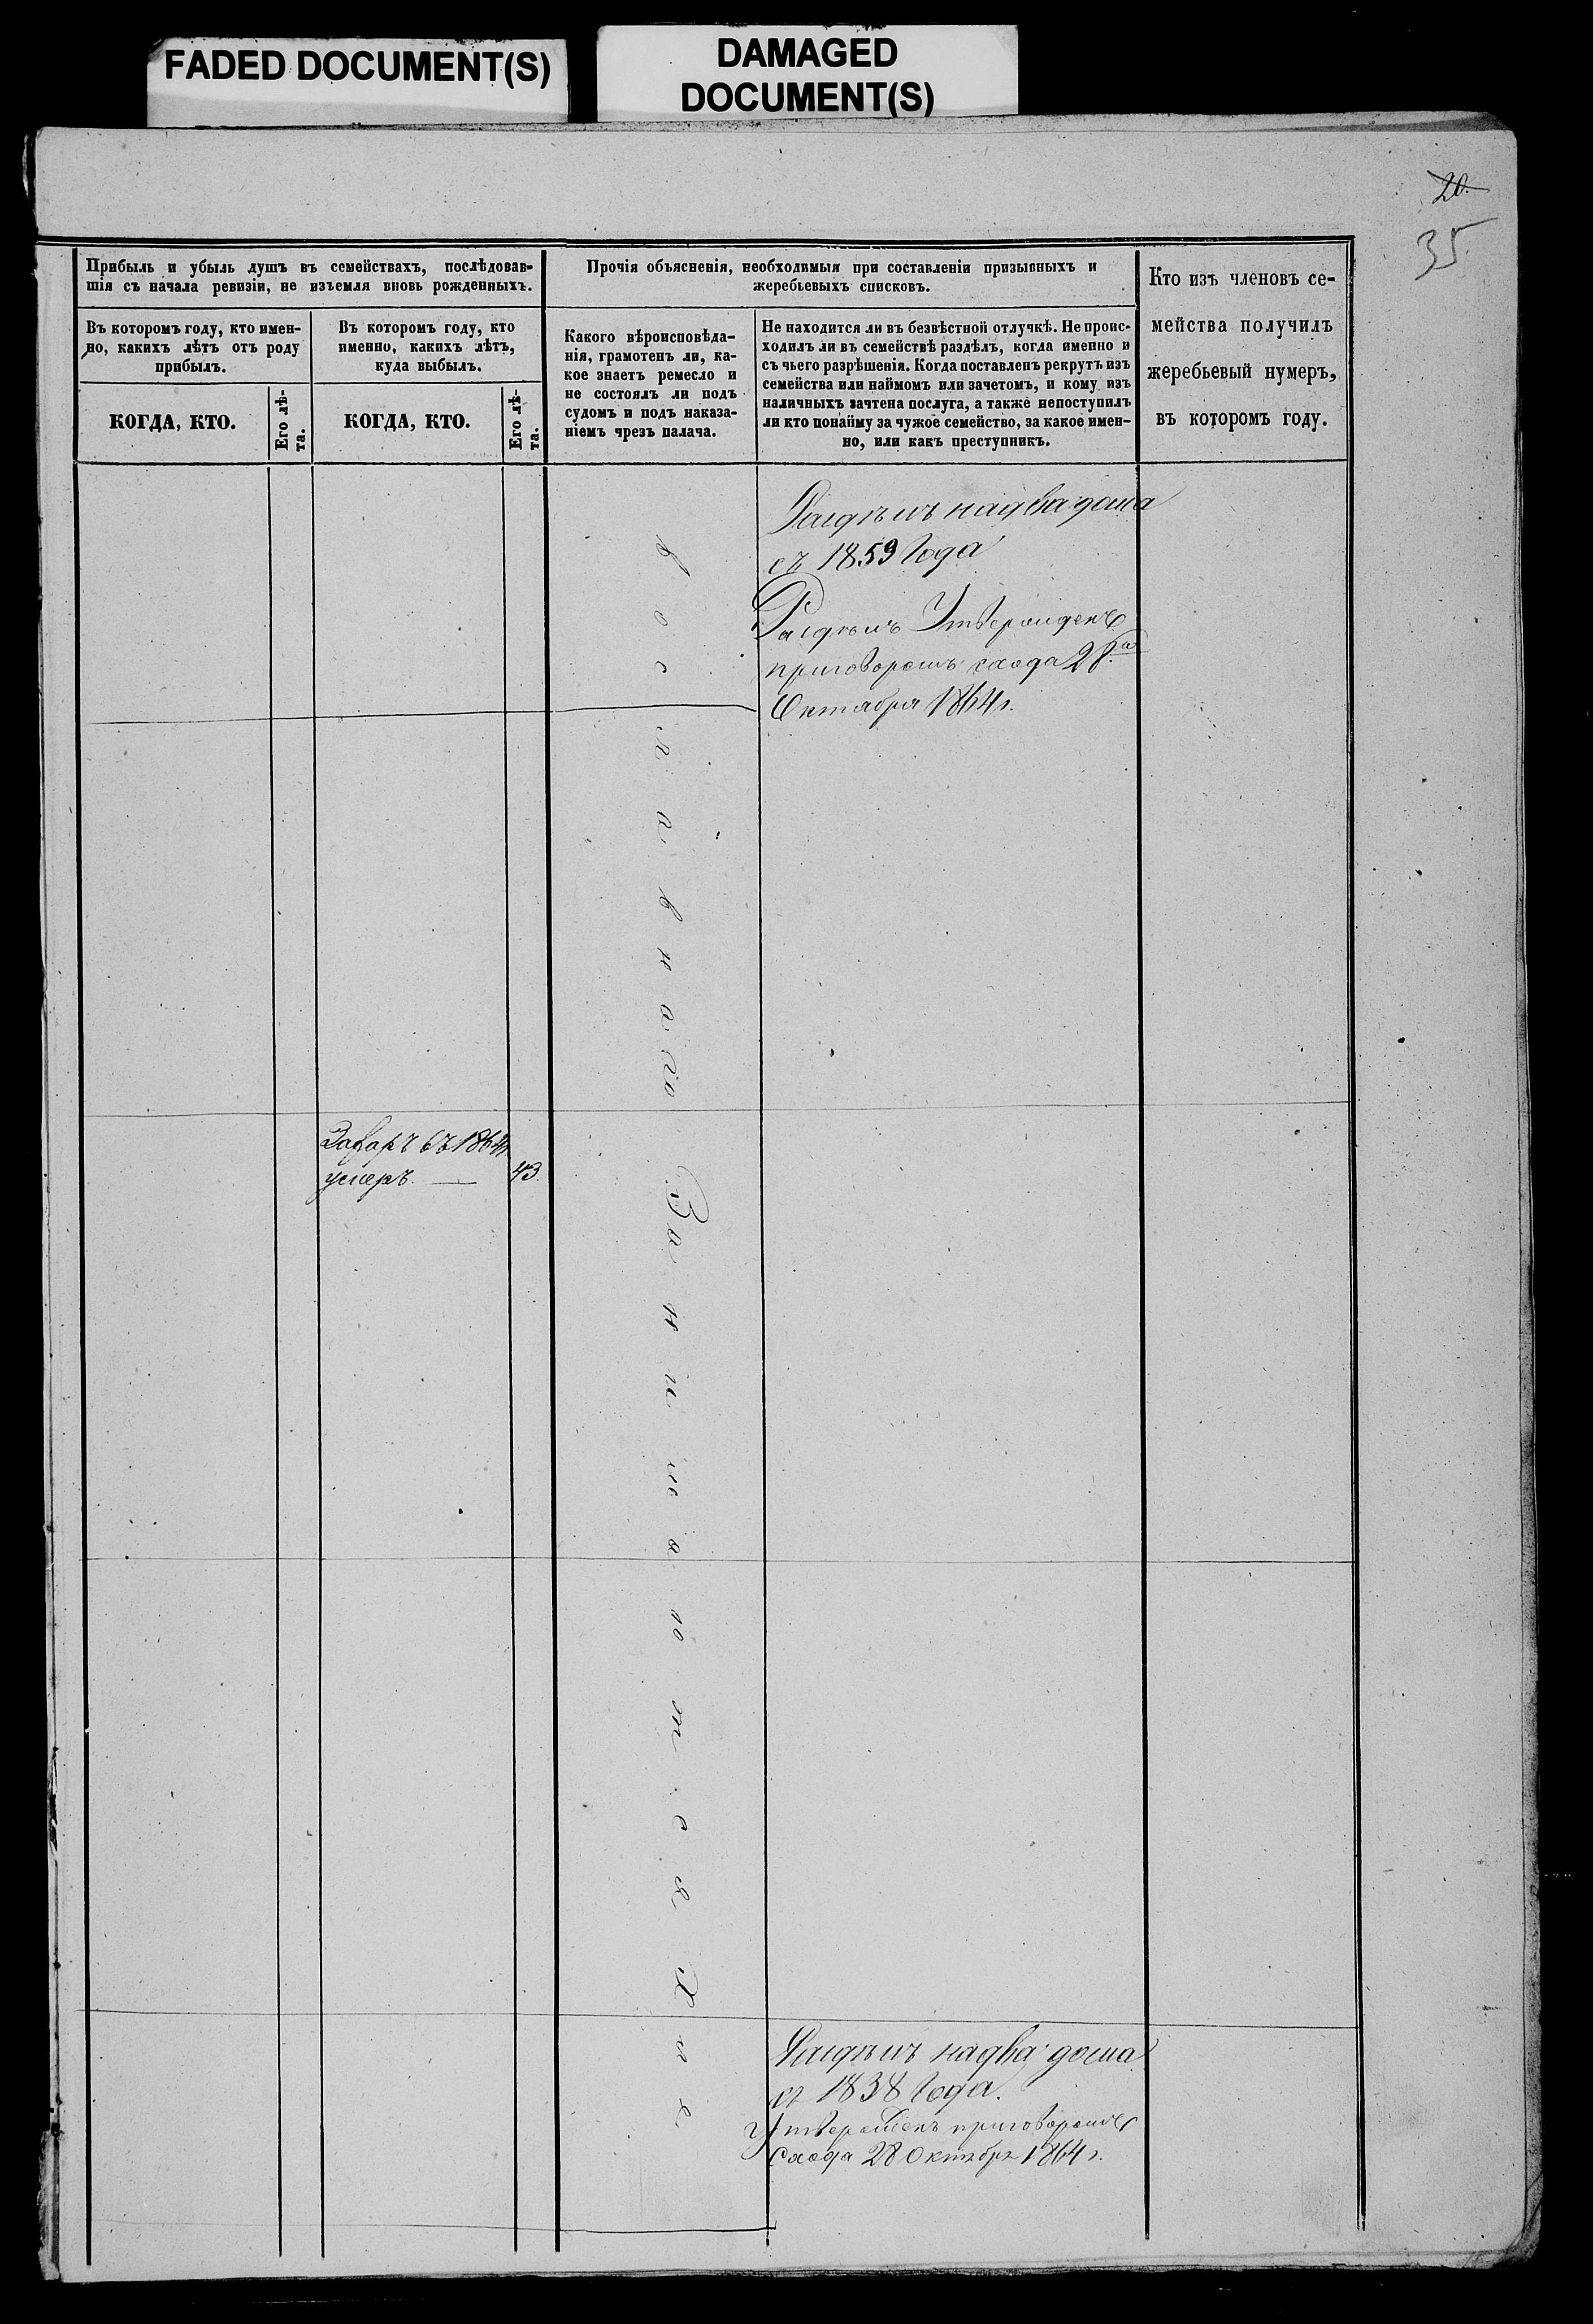 FADED DOCUMENT(S)
DAMAGED
DOCUMENT(S)
20.
35
Прибыль и убыль душъ въ семействахъ, послѣдовав-
шія съ начала ревизіи, не изъемля вновь рожденныхъ.
Въ которомъ году, кто имен-
но, какихъ лѣтъ отъ роду
прибылъ.
КОГДА, КТО.
Его лѣ-
та.
Въ которомъ году, кто
именно, какихъ лѣтъ,
куда выбылъ.
КОГДА, КТО.
Его лѣ-
та.
Прочія объясненія, необходимыя при составленіи призывныхъ и
жеребьевыхъ списковъ.
Какого вѣроисповѣда-
нія, грамотенъ ли, ка-
кое знаетъ ремесло и
не состоялъ ли подъ
судомъ и подъ наказа-
ніемъ чрезъ палача.
Не находится ли въ безвѣстной отлучкѣ. Не проис-
ходилъ ли въ семействѣ раздѣлъ, когда именно и
съ чьего разрѣшенія. Когда поставленъ рекрутъ изъ
семейства или наймомъ или зачетомъ, и кому изъ
наличныхъ зачтена послуга, а также непоступилъ
ли кто понайму за чужое семейство, за какое имен-
но, или какъ преступникъ.
Кто изъ членовъ се-
мейства получилъ
жеребьевый нумеръ,
въ которомъ году.
Раздѣлъ на два дома
съ 1859 Года
Раздѣлъ Утвержденъ
приговоромъ схода 28.го
Октября 1864 г.
Захаръ въ 1864 г.
умеръ. — 43.
Занимаются
Раздѣлъ на два дома
съ 1838 Года.
Утвержденъ приговоромъ
Схода 28 Октября 1864 г.